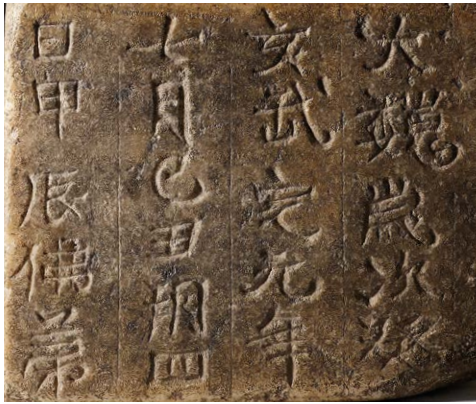 大魏歲次癸
亥武定元年
七月己丑朔四
日申辰佛弟